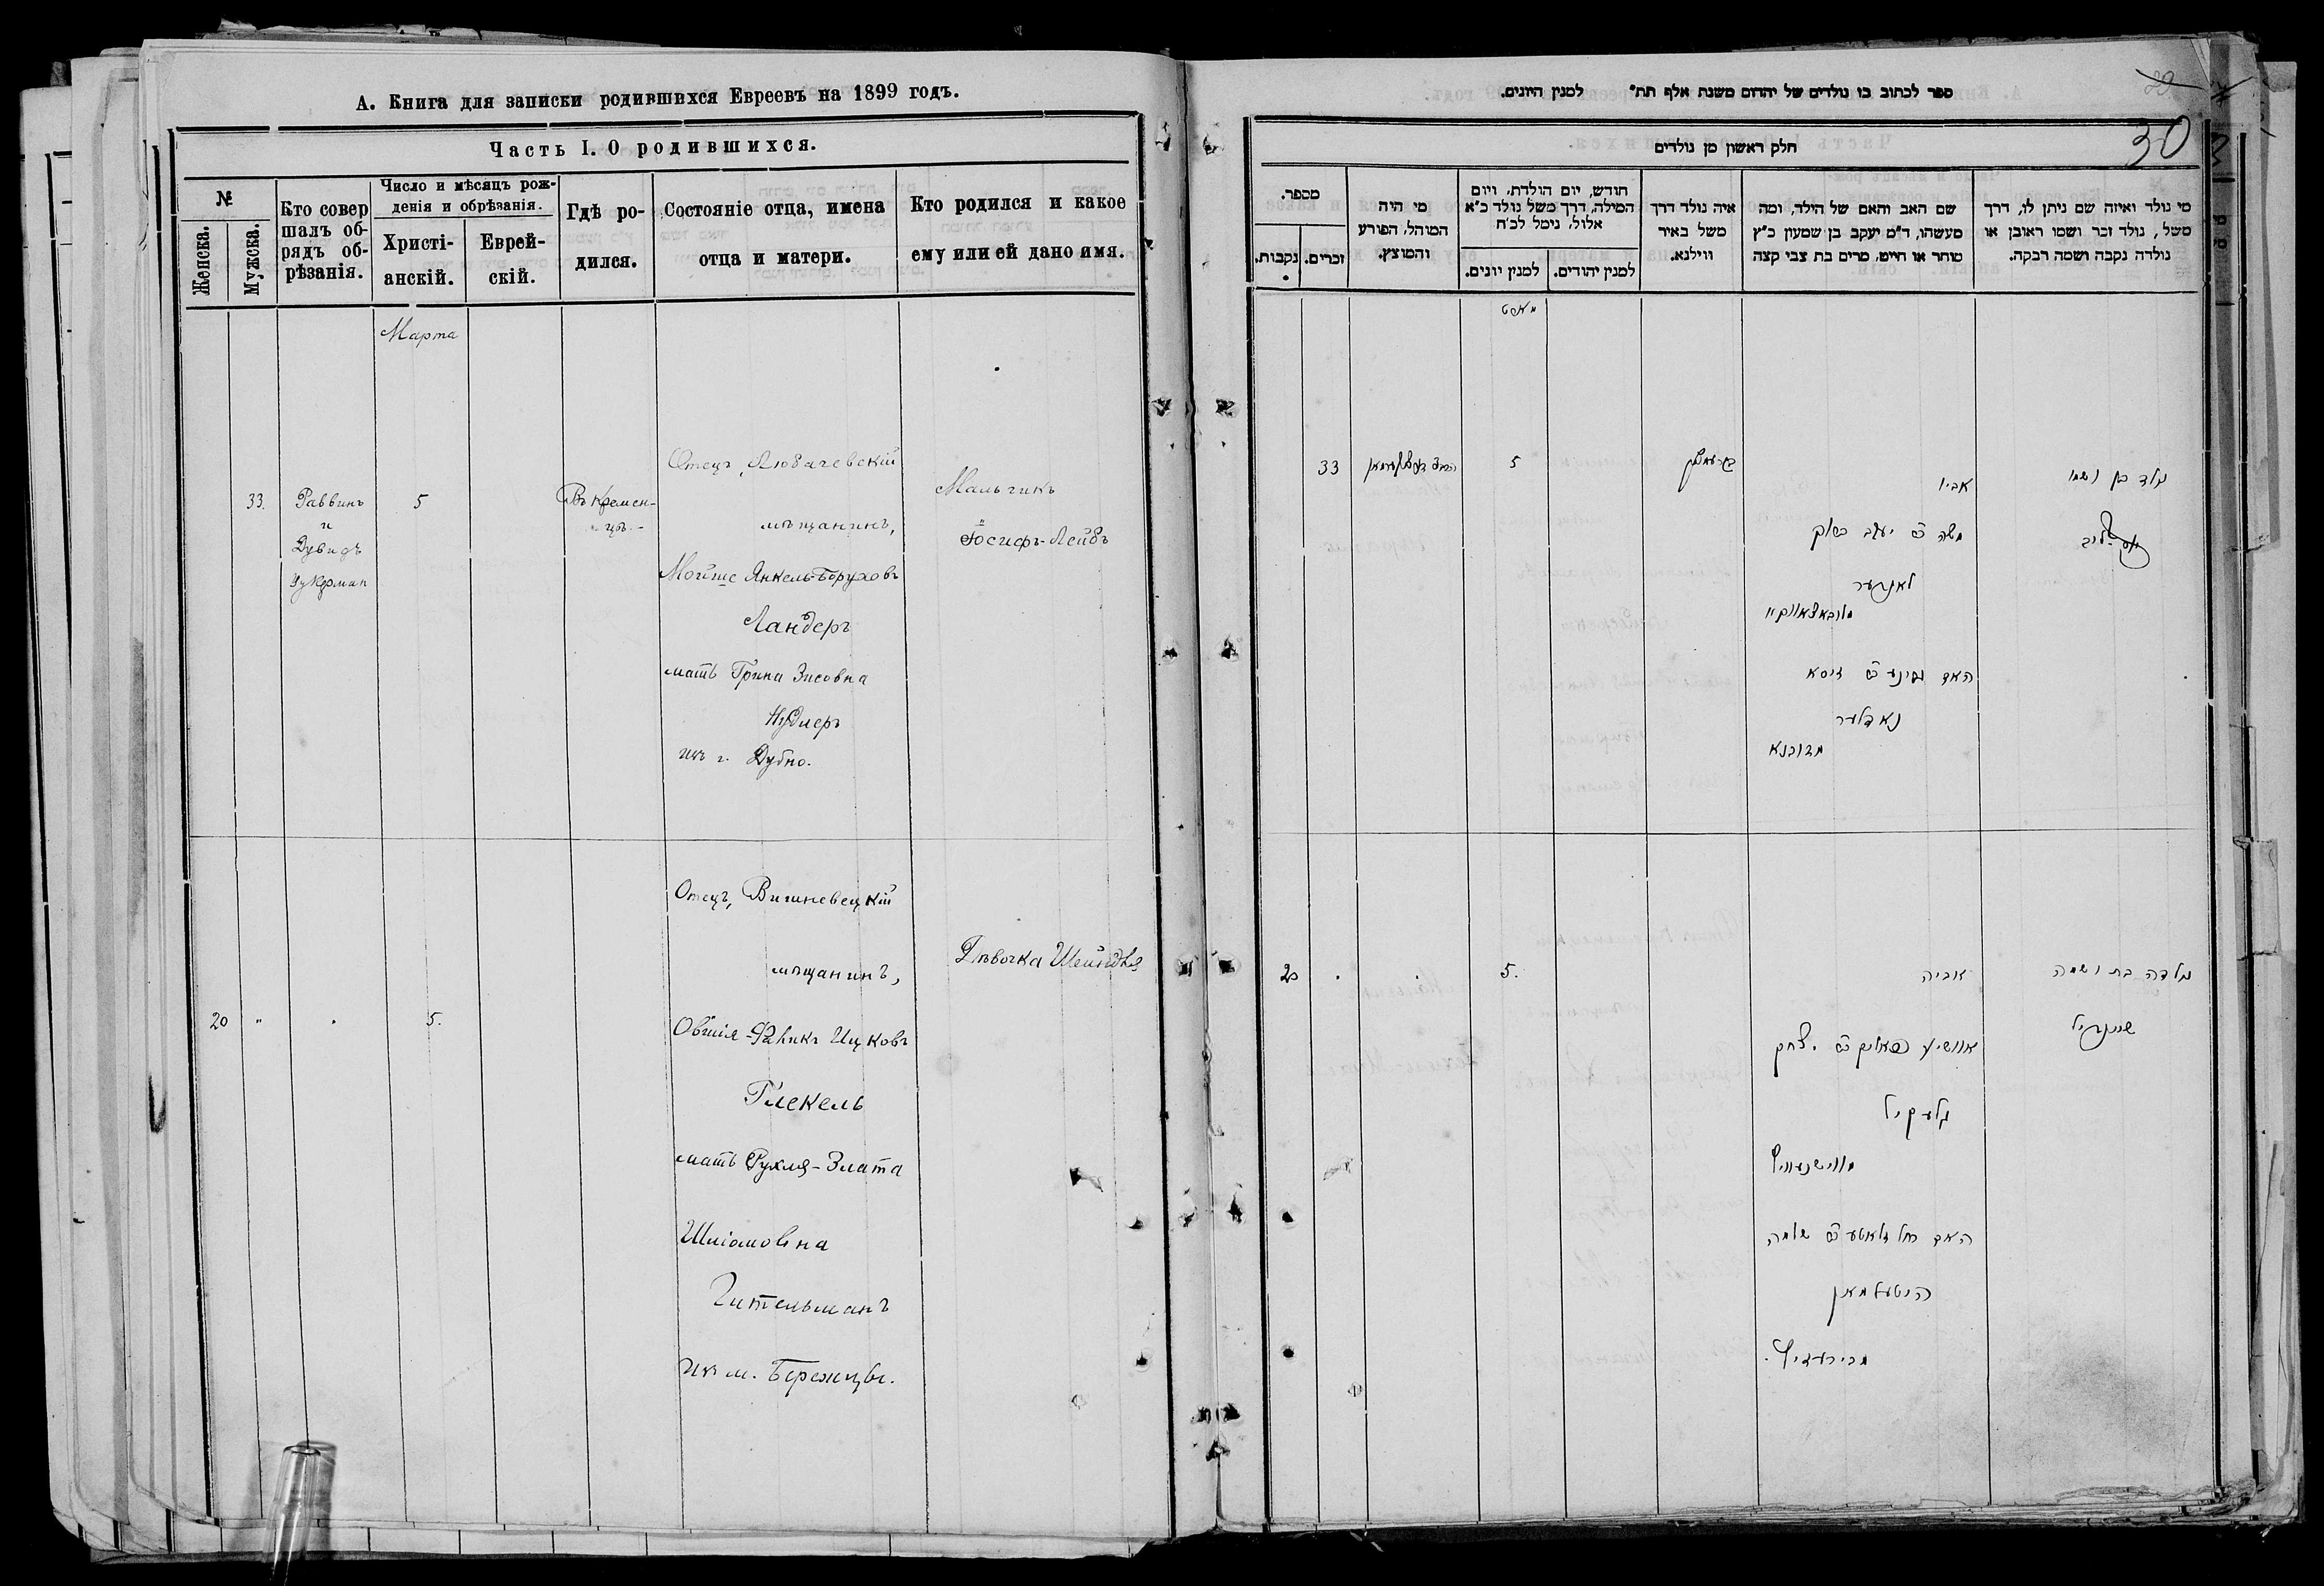 А. Книга для записки родившихся Евреевъ на 1899 годъ.
Часть I. О родившихся.
№
Женска.
Мужска.
Кто совер
шалъ об-
рядъ об-
рѣзанія.
Число и мѣсяцъ рож-
денія и обрѣзанія.
Христі-
анскій.
Еврей-
скій.
Гдѣ ро-
дился.
Состояніе отца, имена
отца и матери.
Кто родился и какое
ему или ей дано имя.
Марта
33.
Раввинъ
и
Дувидъ
Цукерман
5
Въ Кремен-
цѣ.-
Отецъ, Любачевскій
мѣщанинъ,
Мойше Янкель-Боруховъ
Ландеръ
мать Грина Зисовна
Нудлеръ
изъ г. Дубно.
Мальчикъ
Іосифъ-Лейбъ
20
5.
Отецъ, Вишневецкій
мѣщанинъ,
Овшія- Ицковъ
Глекель
мать Рухля-Злата
Шліомовна
Гительманъ
изъ м. Бережцы.
Дѣвочка Шейндля
ספר לכתוב בו נולדים של יהדום משנת אלף תת״ למנין היונים.
30
חלק ראשון מן נולדים
מספר.
נקבות.
זכרים.
מי היה
המוהל, הפורע
והמוצץ.
חודש, יום הולדת, ויום
המילה, דרך משל נולד כ״א
אלול, נימל לכ״ח
למנין יונים.
למנין יהודים.
איה נולד דרך
משל באיר
ווילנא.
שם האב והאם של הילד, ומה
מעשהו, ד״מ יעקב בן שמעון כ״ץ
סוחר או חייט, מרים בת צבי קצה
מי נולד ואיזה שם ניתן לו, דרך
משל, נולד זכר ושמו ראובן או
נולדה נקבה ושמה רבקה.
מארט
33
5
אביו
משה יעקב
לאנדער
האם זיסא
נאדלער
מדובנא
נולד בן ושמו
20
5.
אביה
יצחק
גלעקיל
האם רחל זלאטע שלמה
היטעלמאן
נולדה בת ושמה
שיינדיל